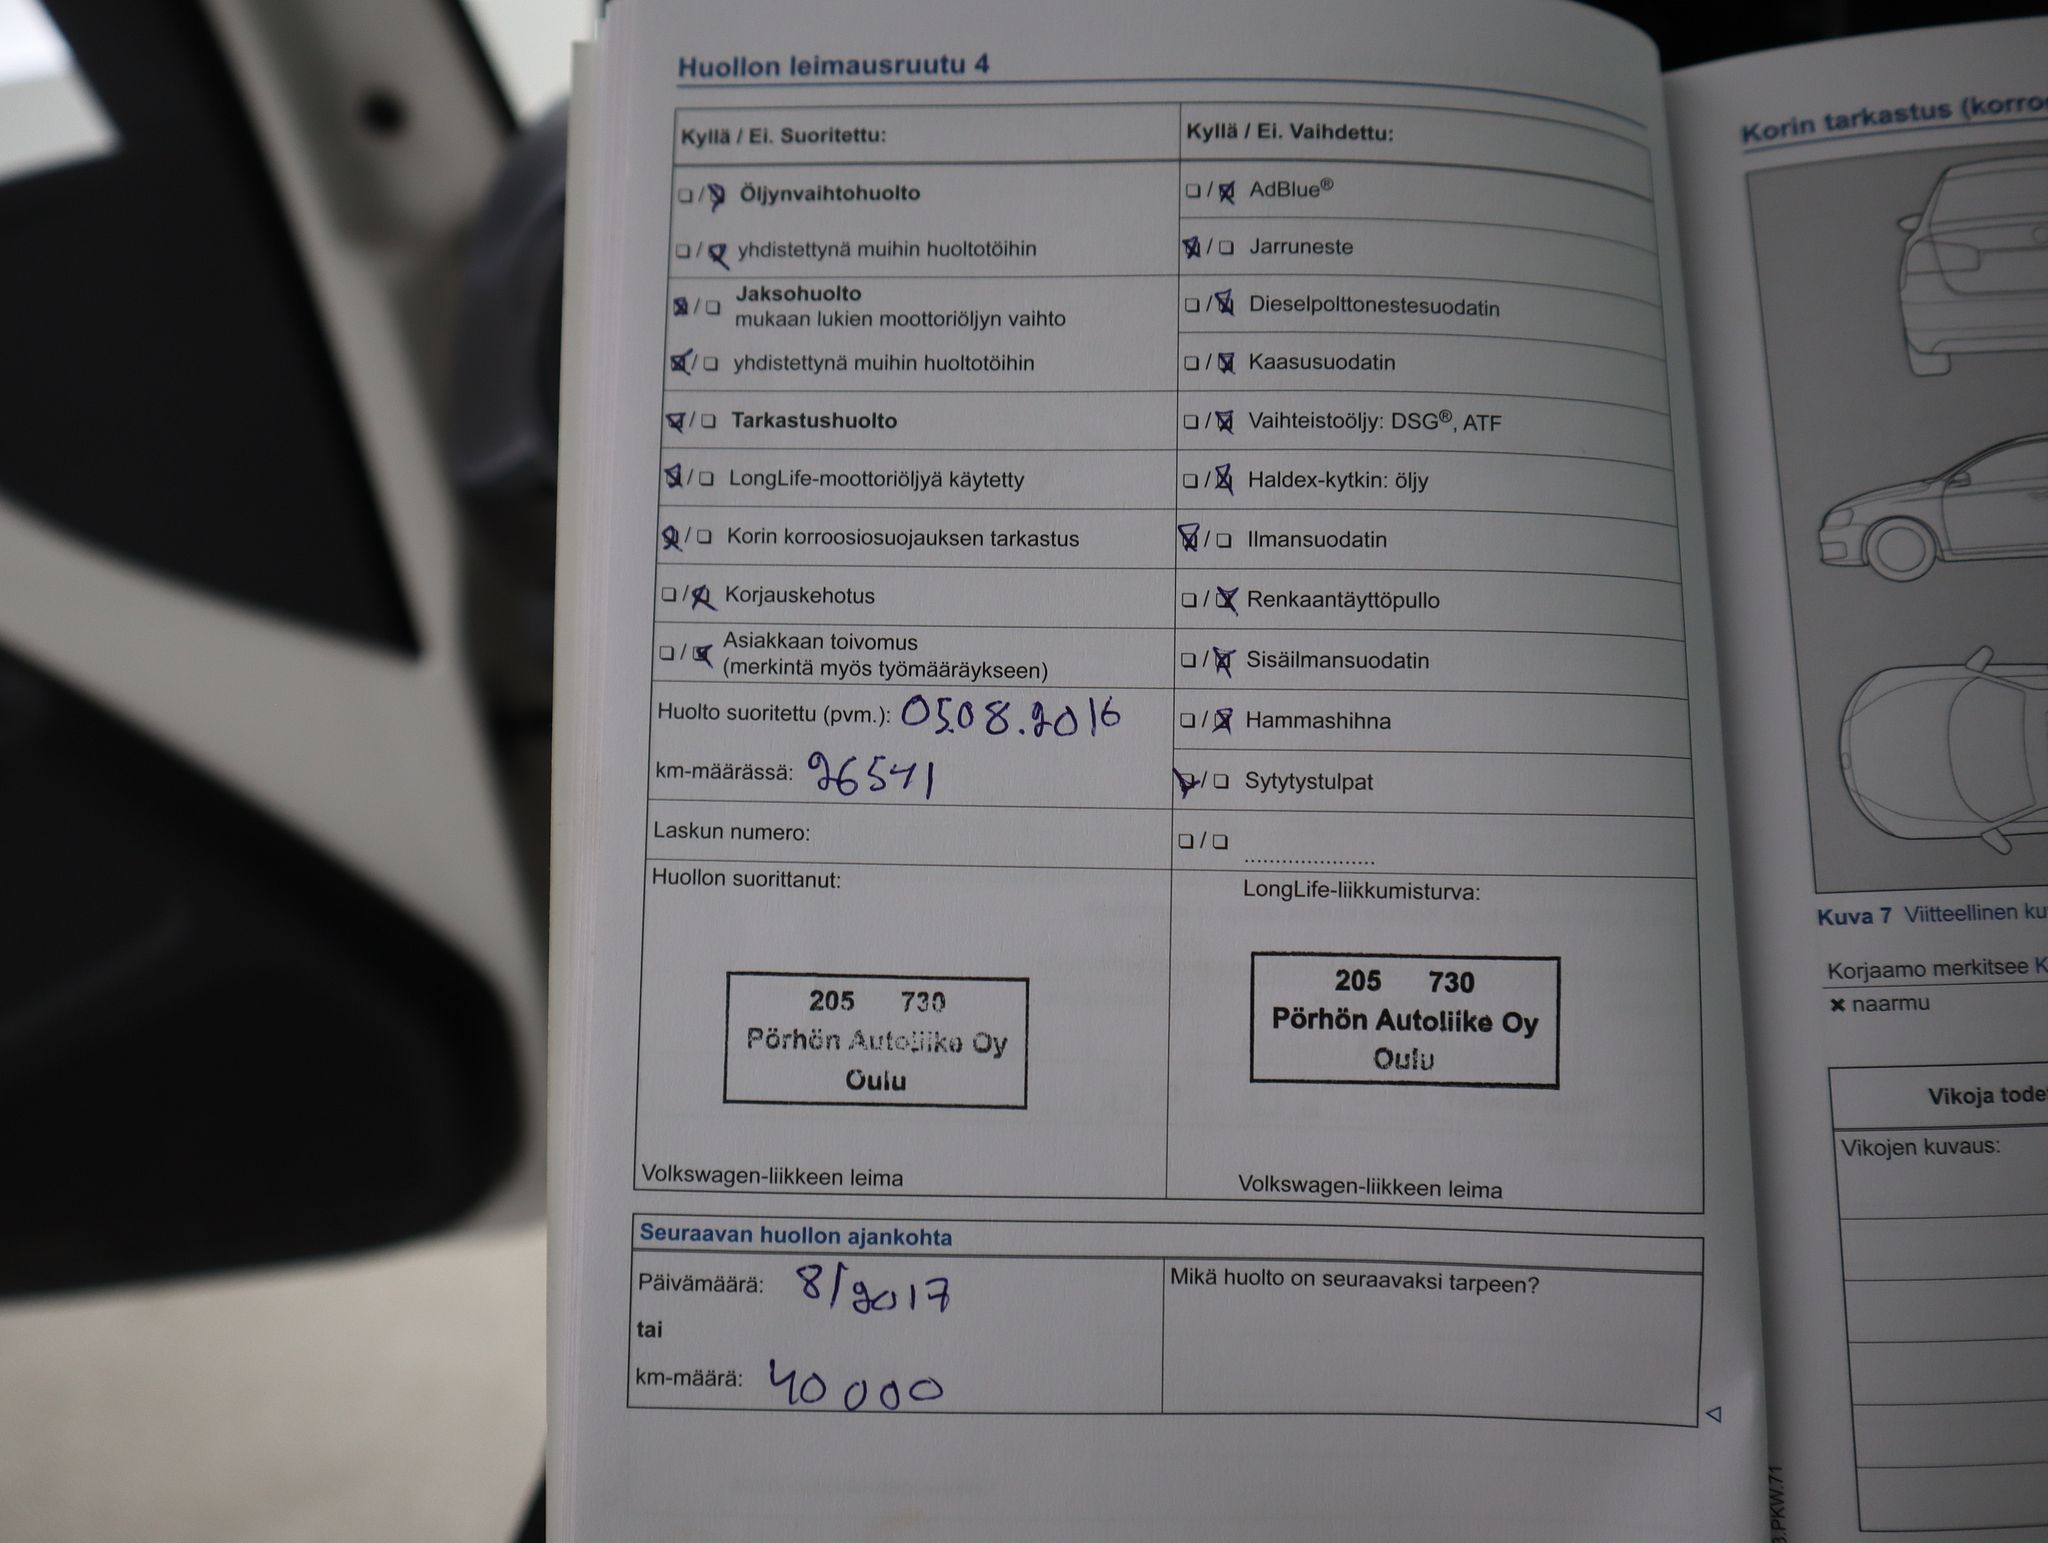 Huollon leimausruutu 4
Kyllä / Ei. Suoritettu:
❏ / ❏ Öljynvaihtohuolto
❏ / ❏ yhdistettynä muihin huoltotöihin
❏ / ❏ Jaksohuolto
mukaan lukien moottoriöljyn vaihto
❏ / ❏ yhdistettynä muihin huoltotöihin
❏ / ❏ Tarkastushuolto
❏ / ❏ LongLife-moottoriöljyä käytetty
❏ / ❏ Korin korroosiosuojauksen tarkastus
❏ / ❏ Korjauskehotus
❏ / ❏ Asiakkaan toivomus
(merkintä myös työmääräykseen)
Huolto suoritettu (pvm.): 05.08.2016
km-määrässä: 26541
Laskun numero:
Huollon suorittanut:
205 730
Pörhön Autoliike Oy
Oulu
Volkswagen-liikkeen leima
Kyllä / Ei. Vaihdettu:
❏ / ❏ AdBlue®
❏ / ❏ Jarruneste
❏ / ❏ Dieselpolttonestesuodatin
❏ / ❏ Kaasusuodatin
❏ / ❏ Vaihteistoöljy: DSG®, ATF
❏ / ❏ Haldex-kytkin: öljy
❏ / ❏ Ilmansuodatin
❏ / ❏ Renkaantäyttöpullo
❏ / ❏ Sisäilmansuodatin
❏ / ❏ Hammashihna
❏ / ❏ Sytytystulpat
❏ / ❏ ......................
LongLife-liikkumisturva:
205 730
Pörhön Autoliike Oy
Oulu
Volkswagen-liikkeen leima
Seuraavan huollon ajankohta
Päivämäärä: 8/2017
tai
km-määrä: 40 000
Mikä huolto on seuraavaksi tarpeen?
Korin tarkastus
Kuva 7 Viitteellinen
Korjaamo merkitsee
✖ naarmu
Vikoja
Vikojen kuvaus: